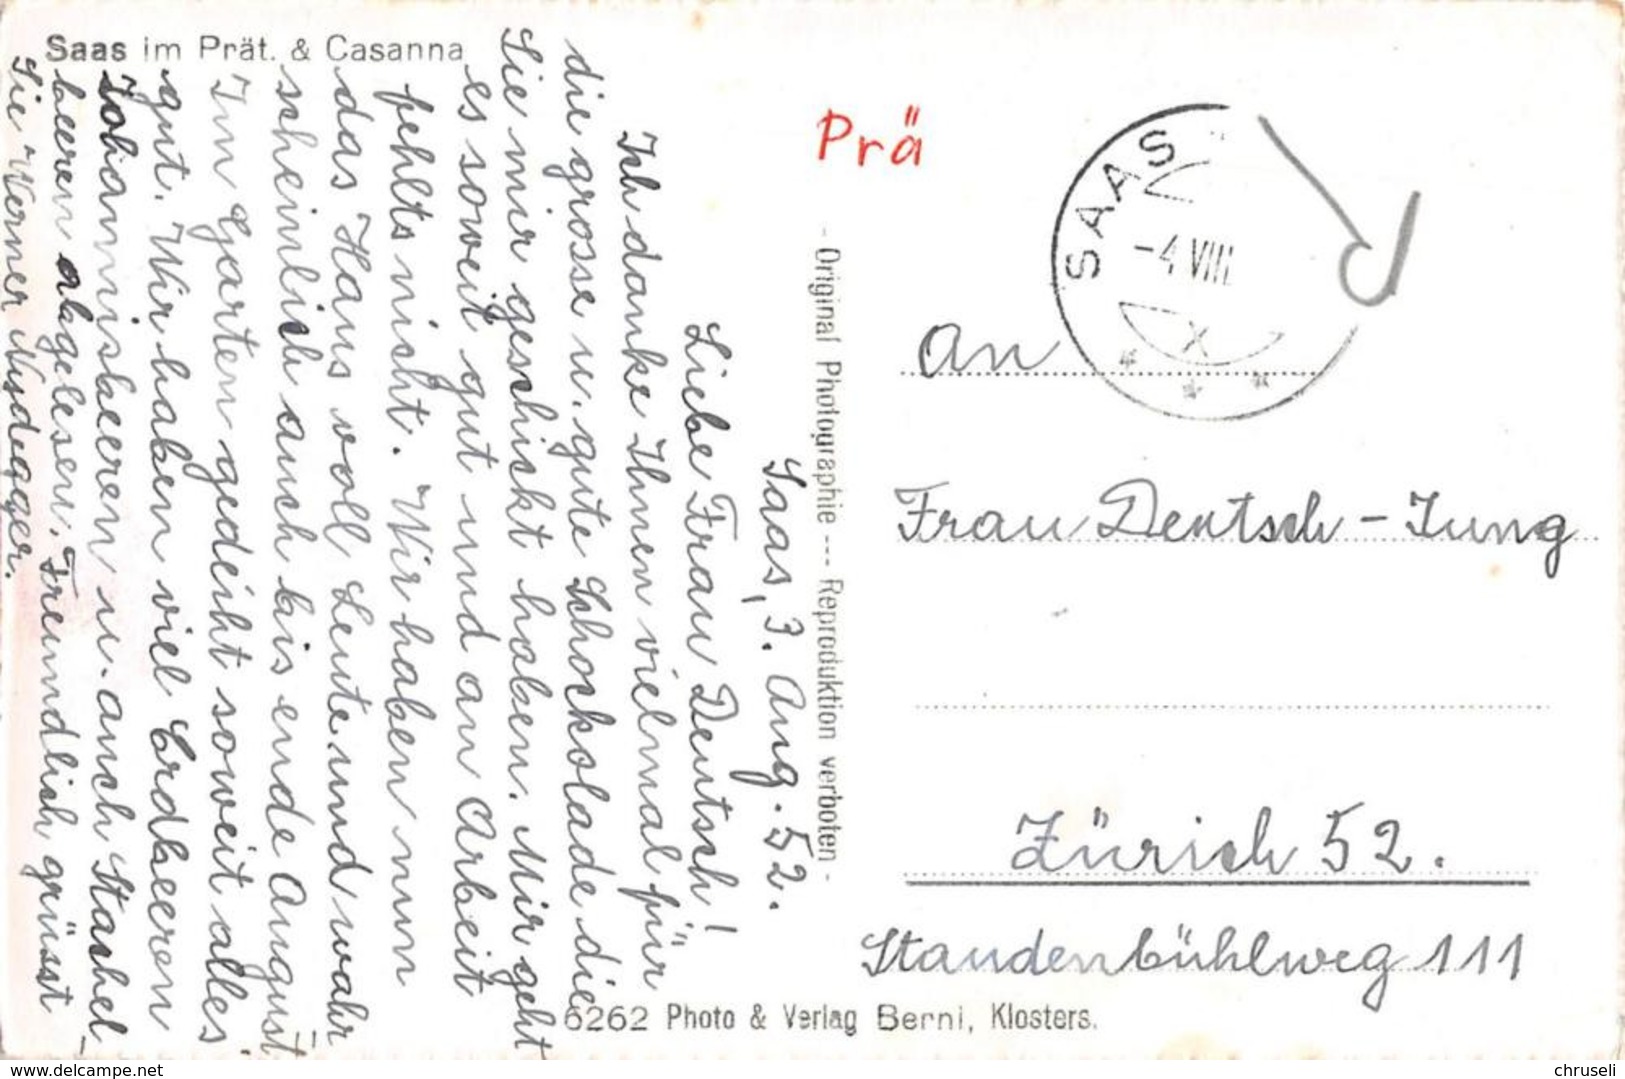 Saas im Prät. & Casanna
Saas, 3. Aug. 52.
Liebe Frau Deutsch!
Ich danke Ihnen vielmal für
die grosse u. gute Schockolade die
Sie mir geschickt haben. Mir geht
es soweit gut und an Arbeit
fehlts nicht. Wir haben nun
das Haus voll Leute und wahr
scheinlich auch bis ende August
Im Garten gedeiht soweit alles
gut. Wir haben viel Erdbeeren
Johannisbeeren u. auch Stachel-
beeren abgelesen. Freundlich grüsst
Sie Werner Nydegger.
- Original Photographie --- Reproduktion verboten -
Prä
SAAS
-4 VIII
X
An
Frau Deutsch-Jung
Zürich 52.
Staudenbühlweg 111
6262 Photo & Verlag Berni, Klosters.
www.delcampe.net
chruseli